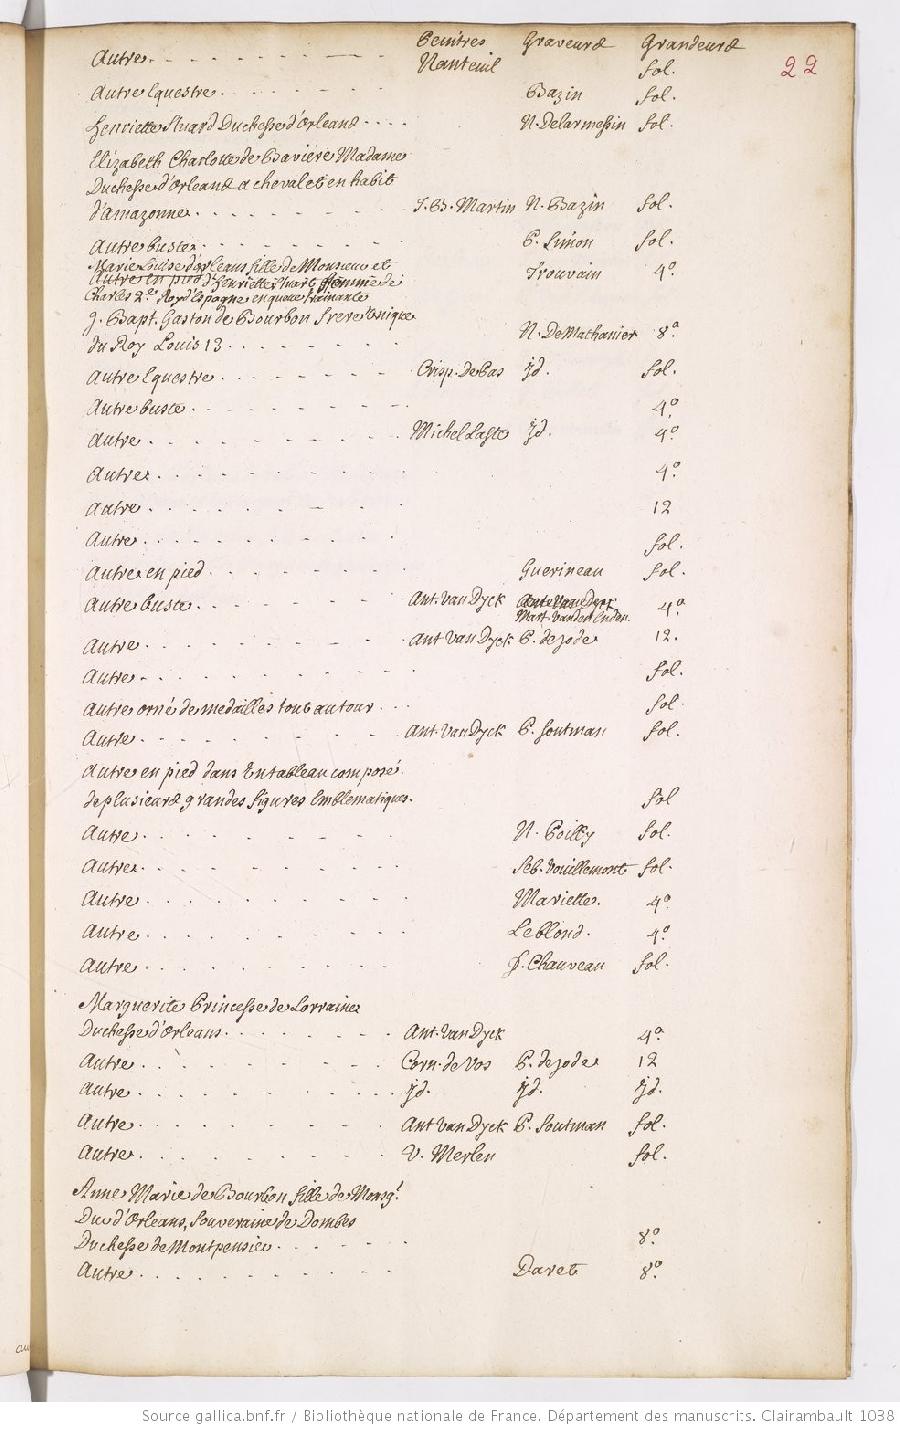 Peintres Graveurs Grandeurs
22
Autre Nanteuil fol.
Autre Equestre Bazin fol.
Henriette Stuard Duchesse d'Orleans N. Delarmessin fol.
Elizabeth Charlotte de Baviere Madame
Duchesse d'Orleans a cheval et en habit
d'amazonne J. B. Martin N. Bazin fol.
Autre buste P. Simon fol.
Marie Louise d'orleans fille de Monsieur et
Autre en pied d'henriette Stuart femme de Trouvain 4º
Charles 2e Roy d'Espagne en queue trainante
J. Bapt. Gaston de Bourbon frere Unique
du Roy Louis 13 N. De Mathonier 8º
Autre Equestre Crisp. de Pas jd. fol.
Autre buste 4º
Autre Michel Lasne jd. 4º
Autre 4º
Autre 12
Autre fol.
Autre en pied Guerineau fol.
Autre buste Ant. Van Dyck Ant. Van Dyck 4º
Mart. Vanden Enden
Autre Ant Van Dyck P. de jode 12.
Autre fol.
Autre orné de medailles tout autour fol
Autre Ant. Van Dyck P. Soutman fol.
Autre en pied dans Un tableau composé
de plusieurs grandes figures Emblematiques. fol
Autre N. Poilly fol.
Autre Seb. Vouillemont fol.
Autre Mariette. 4º
Autre Leblond. 4º
Autre F. Chauveau fol.
Marguerite Princesse de Lorraine
Duchesse d'Orleans Ant. Van Dyck 4º
Autre Corn. de Vos P. de jode 12
Autre jd. jd. jd.
Autre Ant Van Dyck P. Soutman fol.
Autre V. Merlen fol.
Anne Marie de Bourbon fille de Monsgr
Duc d'Orleans, Souveraine de Dombes
Duchesse de Montpensier 8º
Autre Daret 8º
Source gallica.bnf.fr / Bibliothèque nationale de France. Département des manuscrits. Clairambault 1038